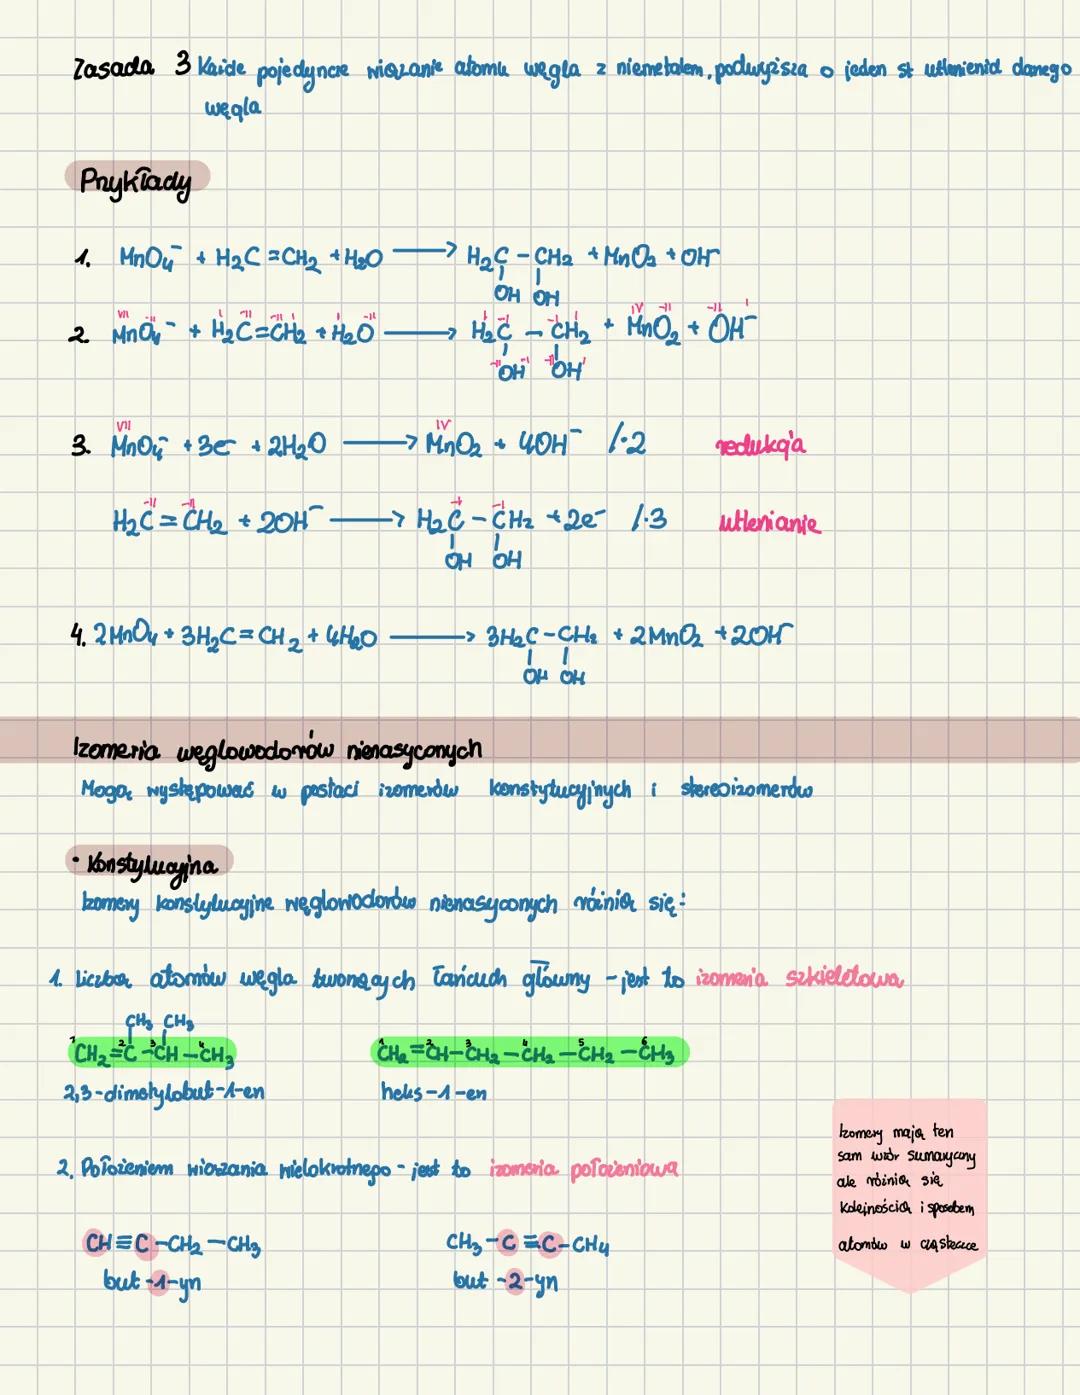 Zasada 3 Każde pojedyncze wiązanie atomu węgla z niemetalem, podwyższa o jeden st utlenienia danego
węgla
Przykłady
1. MnO₄⁻ + H₂C=CH₂ + H₂O ⟶ H₂C – CH₂ + MnO₂ + OH⁻
OH OH
VII -II I -II -II I I -II I -I -I I IV -II -II I
2. MnO₄⁻ + H₂C=CH₂ + H₂O ⟶ H₂C – CH₂ + MnO₂ + OH⁻
-II OH I -II OH I
VII IV
3. MnO₄⁻ + 3e⁻ + 2H₂O ⟶ MnO₂ + 4OH⁻ /·2 redukcja
-II -II -I -I
H₂C=CH₂ + 2OH⁻ ⟶ H₂C – CH₂ + 2e⁻ /·3 utlenianie
OH OH
4. 2MnO₄ + 3H₂C=CH₂ + 4H₂O ⟶ 3H₂C–CH₂ + 2MnO₂ + 2OH⁻
OH OH
Izomeria węglowodorów nienasyconych
Mogą występować w postaci izomerów konstytucyjnych i stereoizomerów
• Konstytucyjna
Izomery konstytucyjne węglowodorów nienasyconych różnią się:
1. Liczbą atomów węgla tworzących łańcuch główny – jest to izomeria szkieletowa
CH₃ CH₃
1 2 3 4 1 2 3 4 5 6
CH₂=C–CH–CH₃ CH₂=CH–CH₂–CH₂–CH₂–CH₃
2,3-dimetylobut-1-en heks-1-en
2. Położeniem wiązania wielokrotnego – jest to izomeria położeniowa
CH≡C–CH₂–CH₃ CH₃–C≡C–CH₄
but-1-yn but-2-yn
Izomery mają ten
sam wzór sumaryczny
ale różnią się
kolejnością i sposobem
atomów w cząsteczce